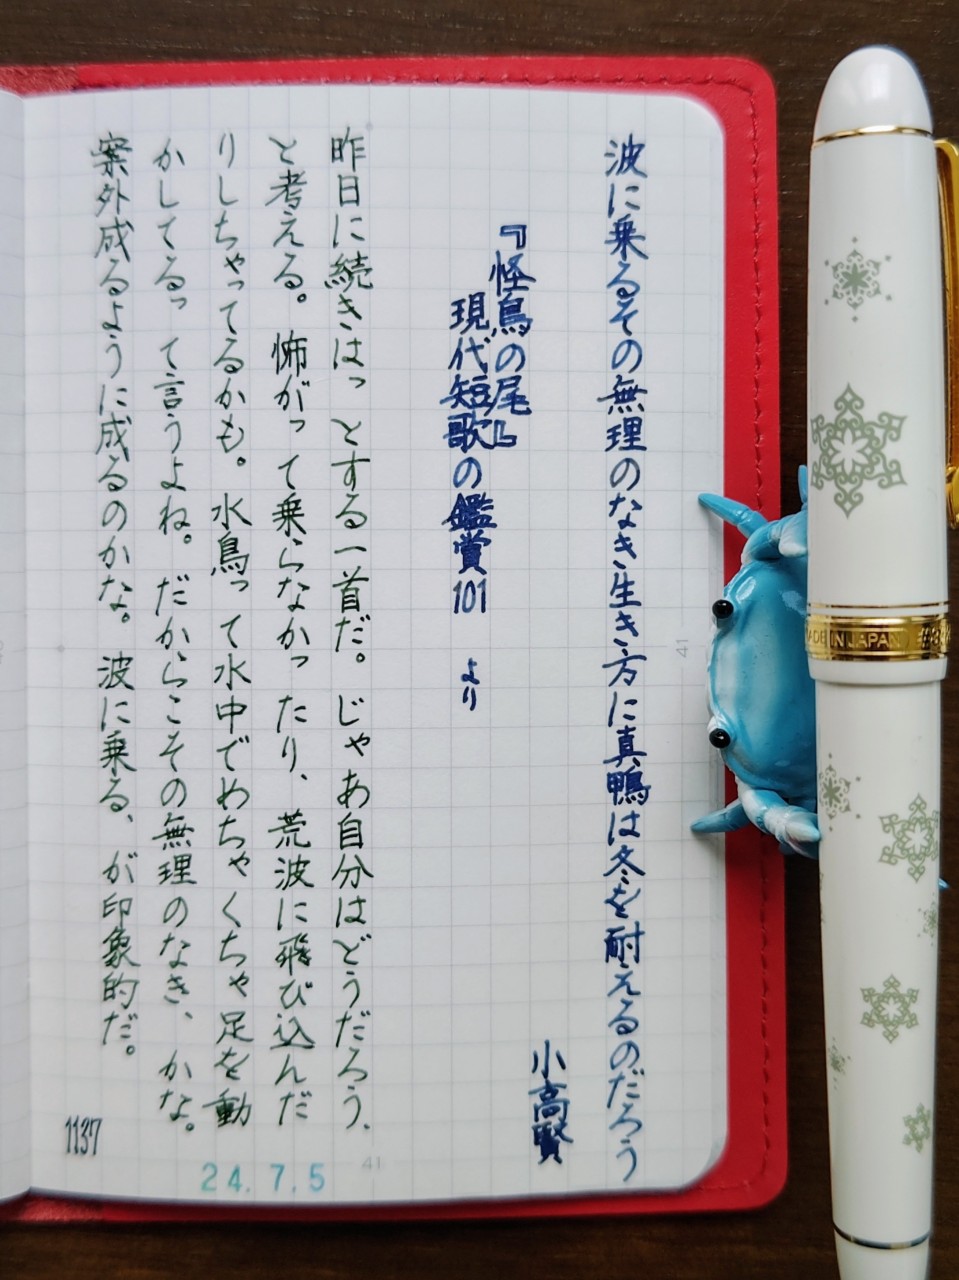 波に乗るその無理のなき生き方に真鴨は冬を耐えるのだろう
小高賢
『怪鳥の尾』
現代短歌の鑑賞101 より
昨日に続きはっとする一首だ。じゃあ自分はどうだろう、
と考える。怖がって乗らなかったり、荒波に飛び込んだ
りしちゃってるかも。水鳥って水中でめちゃくちゃ足を動
かしてるって言うよね。だからこその無理のなき、かな。
案外成るように成るのかな。波に乗る、が印象的だ。
1137
24.7.5
41
41
MADE IN JAPAN